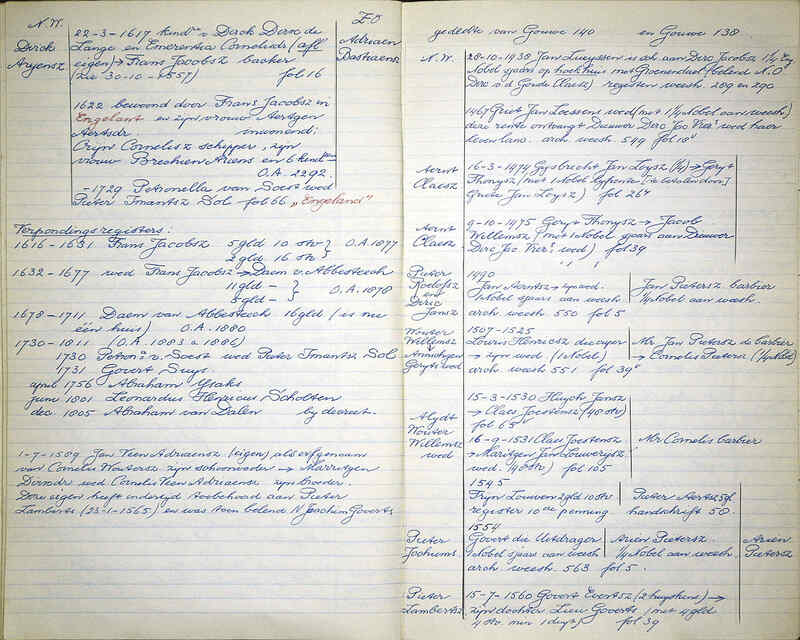 N.W. Z.O
Dirck Aryensz
22-3-1617 kind v Dack Dircx de
Lange en Emerentia Cornelisdr (afl
eigen) → Frans Jacobsz backer
(zie 30-10-1557) fol 16
Adriaen Bastiaensz
1622 bewoond door Frans Jacobsz in
Engelant en zijn vrouw Aertgen
Aertsdr inwonend:
Crijn Cornelisz schipper, zijn
vrouw Brechien Ariens en 6 kind
O.A. 2292.
-1729 Petronella van Soest wed
Pieter Imantsz Dol fol 66 "Engeland"
Verpondingsregisters:
1616-1631 Frans Jacobsz 5 gld 10 stv } O.A. 1877
2 gld 16 stv }
1632-1677 wed Frans Jacobsz → Daem v. Abbesteech
11 gld - } O.A. 1878
5 gld - }
1678-1711 Daem van Abbesteech 16 gld (is nu
één huis) O.A. 1880
1730-1811 (O.A. 1883 a 1886)
1730 Petron v. Soest wed Pieter Imantsz Dol
1731 Govert Duys.
april 1756 Abraham Ysaks
june 1801 Leonardus Henricus Scholten
dec 1805 Abraham van Dalen by decreet.
1-7-1589 Jan Veen Adriaensz (eigen) als erfgenaam
van Cornelis Woutersz zijn schoonvader → Marritgen
Dircxdr wed Cornelis Veen Adriaensz zijn broeder.
Deze eigen heeft indertyd toebehoord aan Pieter
Lamberts (23-1-1565) en was toen belend N Jochim Goverts
gedeelte van Gouwe 140 en Gouwe 138
N.W.
28-10-1438 Jan Lueyssen is sch aan Derc Jacobsz 1½ Eng
Nobel sjaars op hoekhuis met Groenendael (belend N.O
Derc v.d. Goude Claesz) register weesh. 289 en 290
1467 Griet Jan Loessen wed (met 1½ Nobel aan weesh)
deze rente ontvangt Deuwer Derc Jac Vier wed haer
leven lanc. arch weesh 549 fol 18
Aernt Claesz
16-3-1474 Gysbrecht Jan Leysz (½) → Geryt
Thonysz (met 1 Nobel lyfrente [te betalen door]
Griete Jan Leysz) fol 26
Aernt Claesz
9-10-1475 Geryt Thonysz → Jacob
Willemsz (met 1 Nobel sjaars aan Deuwer
Derc Jac Vier wed) fol 39
Pieter Roelofsz en Deric Jansz
1490
Jan Aerntsz → zn wed.
1 Nobel sjaars aan weesh
arch weesh 550 fol 5
Jan Pietersz barbier
½ Nobel aan weesh.
Wouter Willemsz
↓
Annichgen Geryts wed
1507-1525
Louris Henricsz die cuyper
→ zijn wed (1 Nobel)
arch weesh 551 fol 39
Mr. Jan Pietersz de barbier
→ Cornelis Pietersz (½ Nobel)
Alydt Wouter Willemsz wed
15-3-1530 Huych Jansz
→ Claes Joestensz (40 stv)
fol 65
16-9-1531 Claes Joestensz
→ Maritgen Jan Louwerysz
wed. (40 stv) fol 105
Mr Cornelis barbier
1545
Tryn Louwen 2 gld 10 stv
register 10de penning.
Pieter Aertsz 5 gl
handschrift 58.
Pieter Jochiemsz
1554
Govert die Uitdrager
1 Nobel sjaars aan weesh
arch weesh. 563 fol 5.
Arien Pietersz.
½ Nobel aan weesh.
Arien Pietersz
Pieter Lambertsz
15-7-1560 Govert Evertsz (2 huyskens) →
zijn dochter Lieu Goverts (met 4 gld
4 stv min 1 duyt) fol 39